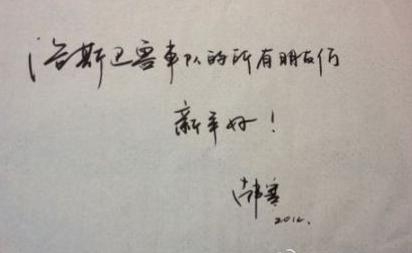 洛斯卫客车队的所有朋友们
新年好！
韩寒
2012.